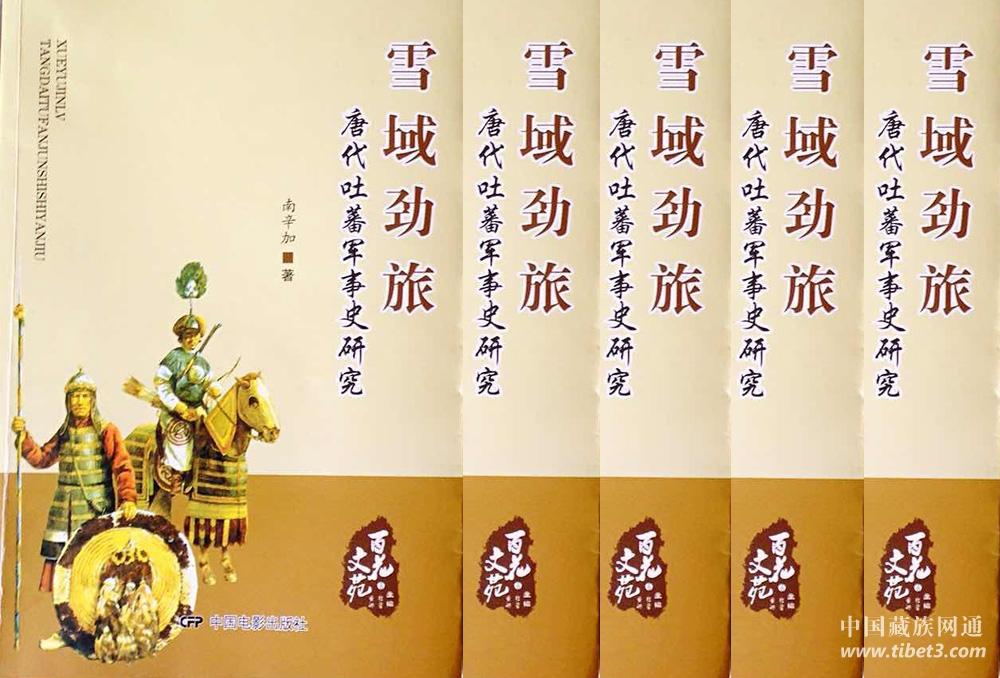 XUEYUJINLV
TANGDAITUFANJUNSHISHIYANJIU
雪域劲旅
唐代吐蕃军事史研究
南辛加■著
百花文苑
主编
CFP 中国电影出版社
雪域劲旅
唐代吐蕃军事史研究
百花文苑
主编
雪域劲旅
唐代吐蕃军事史研究
百花文苑
主编
雪域劲旅
唐代吐蕃军事史研究
百花文苑
主编
雪域劲旅
唐代吐蕃军事史研究
百花文苑
主编
中国藏族网通
www.tibet3.com